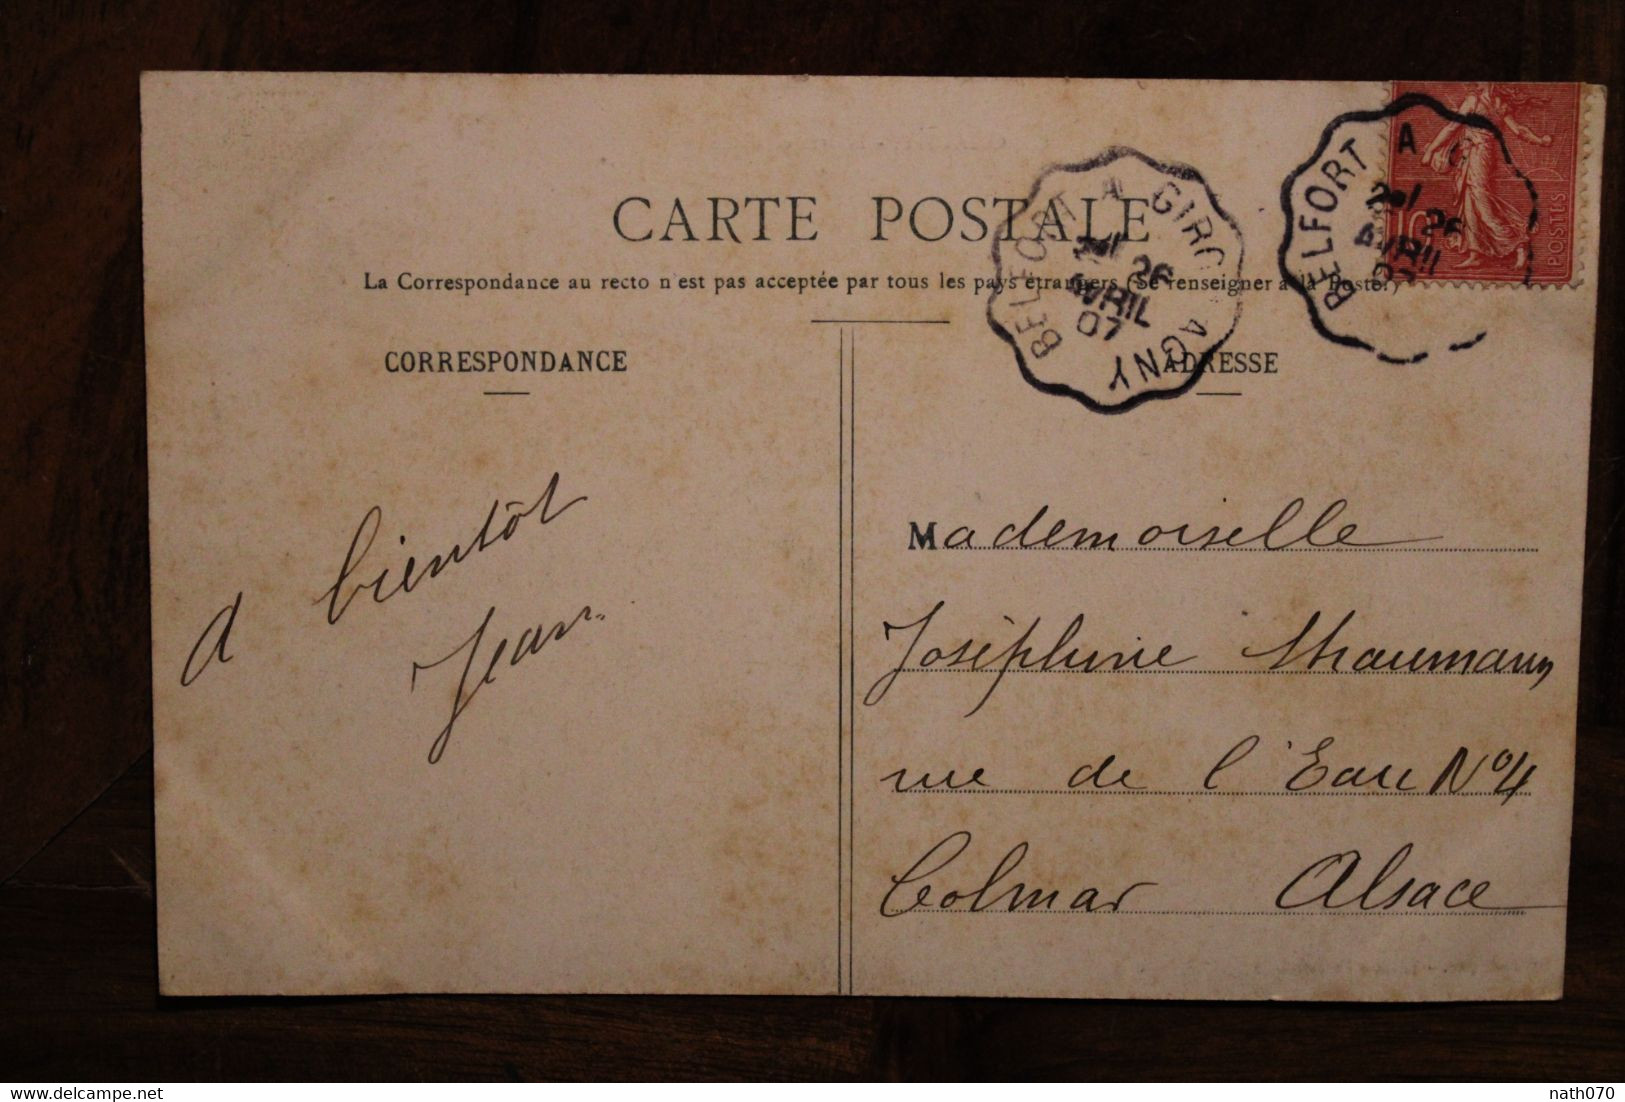 CARTE POSTALE
La Correspondance au recto n'est pas acceptée par tous les pays étrangers (Se renseigner à la Poste.)
CORRESPONDANCE
ADRESSE
A bientôt
Jean
Mademoiselle
Joséphine
rue de l'Eau No 4
Colmar Alsace
BELFORT A GIROMAGNY
26
AVRIL
07
BELFORT A G
26
AVRIL
10
POSTES
nath070